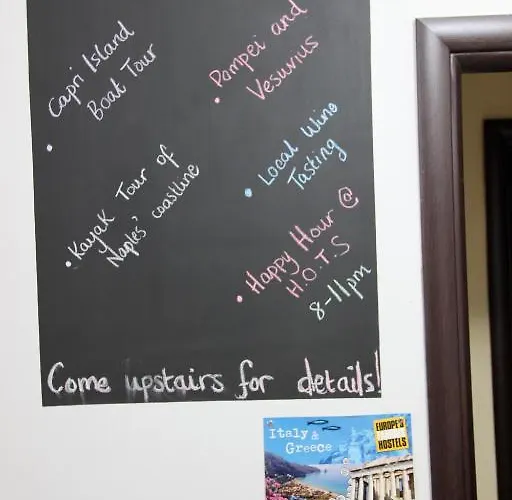 Capri Island
Boat Tour
Pompei and
Vesuvius
Kayak Tour of
Naples' coastline
Local Wine
Tasting
Happy Hour @
H.O.T.S
8-11pm
Come upstairs for details!
Italy &
Greece
EUROPE'S
HOSTELS